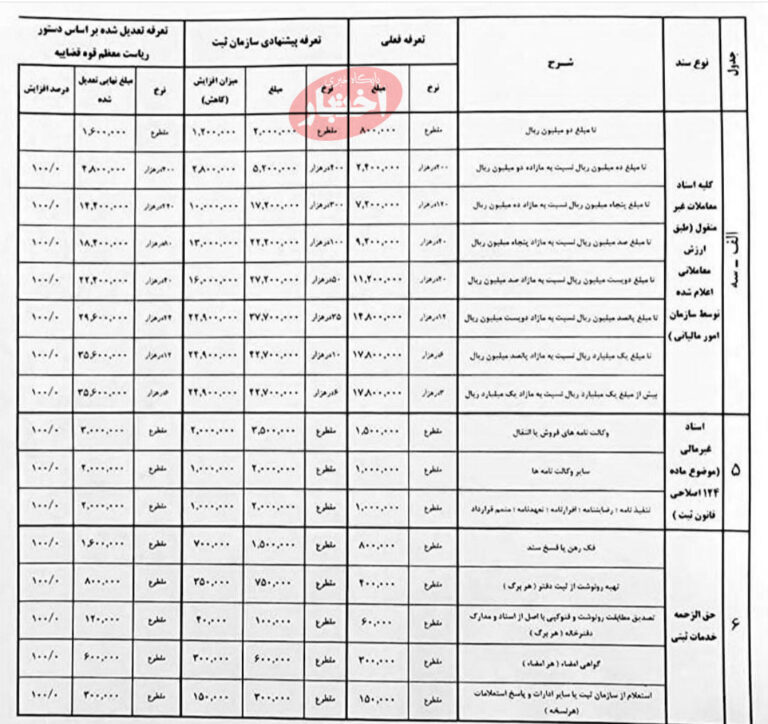 جدول | نوع سند | شرح | تعرفه فعلی | تعرفه پیشنهادی سازمان ثبت | تعرفه تعدیل شده بر اساس دستور ریاست معظم قوه قضاییه
نرخ | مبلغ | نرخ | مبلغ | میزان افزایش (کاهش) | نرخ | مبلغ نهایی تعدیل شده | درصد افزایش
پایگاه خبری
اختبار
الف - سه
کلیه اسناد
معاملات غیر
منقول (طبق
ارزش
معاملاتی
اعلام شده
توسط سازمان
امور مالیاتی)
تا مبلغ دو میلیون ریال | مقطوع | ۸۰۰,۰۰۰ | مقطوع | ۲,۰۰۰,۰۰۰ | ۱,۲۰۰,۰۰۰ | مقطوع | ۱,۶۰۰,۰۰۰
تا مبلغ ده میلیون ریال نسبت به مازاده دو میلیون ریال | ۲۰۰درهزار | ۲,۴۰۰,۰۰۰ | ۴۰۰درهزار | ۵,۲۰۰,۰۰۰ | ۲,۸۰۰,۰۰۰ | ۴۰۰درهزار | ۴,۸۰۰,۰۰۰ | ۱۰۰/۰
تا مبلغ پنجاه میلیون ریال نسبت به مازاد ده میلیون ریال | ۱۲۰درهزار | ۷,۲۰۰,۰۰۰ | ۳۰۰درهزار | ۱۷,۲۰۰,۰۰۰ | ۱۰,۰۰۰,۰۰۰ | ۲۴۰درهزار | ۱۴,۴۰۰,۰۰۰ | ۱۰۰/۰
تا مبلغ صد میلیون ریال نسبت به مازاد پنجاه میلیون ریال | ۴۰درهزار | ۹,۲۰۰,۰۰۰ | ۱۰۰درهزار | ۲۲,۲۰۰,۰۰۰ | ۱۳,۰۰۰,۰۰۰ | ۱۸,۴۰۰,۰۰۰ | ۱۰۰/۰
تا مبلغ دویست میلیون ریال نسبت به مازاد صد میلیون ریال | ۲۰درهزار | ۱۱,۲۰۰,۰۰۰ | ۵۰درهزار | ۲۷,۲۰۰,۰۰۰ | ۱۶,۰۰۰,۰۰۰ | ۴۰درهزار | ۲۲,۴۰۰,۰۰۰ | ۱۰۰/۰
تا مبلغ پانصد میلیون ریال نسبت به مازاد دویست میلیون ریال | ۱۲درهزار | ۱۴,۸۰۰,۰۰۰ | ۳۵درهزار | ۳۷,۷۰۰,۰۰۰ | ۲۲,۹۰۰,۰۰۰ | ۲۴درهزار | ۲۹,۶۰۰,۰۰۰ | ۱۰۰/۰
تا مبلغ یک میلیارد ریال نسبت به مازاد پانصد میلیون ریال | ۶درهزار | ۱۷,۸۰۰,۰۰۰ | ۱۰درهزار | ۴۲,۷۰۰,۰۰۰ | ۲۴,۹۰۰,۰۰۰ | ۱۲درهزار | ۳۵,۶۰۰,۰۰۰ | ۱۰۰/۰
بیش از مبلغ یک میلیارد ریال نسبت به مازاد یک میلیارد ریال | ۳درهزار | ۱۷,۸۰۰,۰۰۰ | ۶درهزار | ۴۲,۷۰۰,۰۰۰ | ۲۴,۹۰۰,۰۰۰ | ۶درهزار | ۳۵,۶۰۰,۰۰۰ | ۱۰۰/۰
۵
اسناد
غیرمالی
(موضوع ماده
۱۲۴ اصلاحی
قانون ثبت)
وکالت نامه های فروش یا انتقال | مقطوع | ۱,۵۰۰,۰۰۰ | مقطوع | ۳,۵۰۰,۰۰۰ | ۲,۰۰۰,۰۰۰ | مقطوع | ۳,۰۰۰,۰۰۰ | ۱۰۰/۰
سایر وکالت نامه ها | مقطوع | ۱,۰۰۰,۰۰۰ | مقطوع | ۲,۰۰۰,۰۰۰ | ۱,۰۰۰,۰۰۰ | مقطوع | ۲,۰۰۰,۰۰۰ | ۱۰۰/۰
تنفیذ نامه ؛ رضایتنامه ؛ اقرارنامه ؛ تعهدنامه ؛ متمم قرارداد | مقطوع | ۱,۰۰۰,۰۰۰ | مقطوع | ۲,۰۰۰,۰۰۰ | ۱,۰۰۰,۰۰۰ | مقطوع | ۲,۰۰۰,۰۰۰ | ۱۰۰/۰
۶
حق الزحمه
خدمات ثبتی
فک رهن یا فسخ سند | مقطوع | ۸۰۰,۰۰۰ | مقطوع | ۱,۵۰۰,۰۰۰ | ۷۰۰,۰۰۰ | مقطوع | ۱,۶۰۰,۰۰۰ | ۱۰۰/۰
تهیه رونوشت از ثبت دفتر (هر برگ) | مقطوع | ۴۰۰,۰۰۰ | مقطوع | ۷۵۰,۰۰۰ | ۳۵۰,۰۰۰ | مقطوع | ۸۰۰,۰۰۰ | ۱۰۰/۰
تصدیق مطابقت رونوشت و فتوکپی با اصل از اسناد و مدارک
دفترخانه (هر برگ) | مقطوع | ۶۰,۰۰۰ | مقطوع | ۱۰۰,۰۰۰ | ۴۰,۰۰۰ | مقطوع | ۱۲۰,۰۰۰ | ۱۰۰/۰
گواهی امضاء (هر امضاء) | مقطوع | ۳۰۰,۰۰۰ | مقطوع | ۶۰۰,۰۰۰ | ۳۰۰,۰۰۰ | مقطوع | ۶۰۰,۰۰۰ | ۱۰۰/۰
استعلام از سازمان ثبت یا سایر ادارات و پاسخ استعلامات
(هرنسخه) | مقطوع | ۱۵۰,۰۰۰ | مقطوع | ۳۰۰,۰۰۰ | ۱۵۰,۰۰۰ | مقطوع | ۳۰۰,۰۰۰ | ۱۰۰/۰